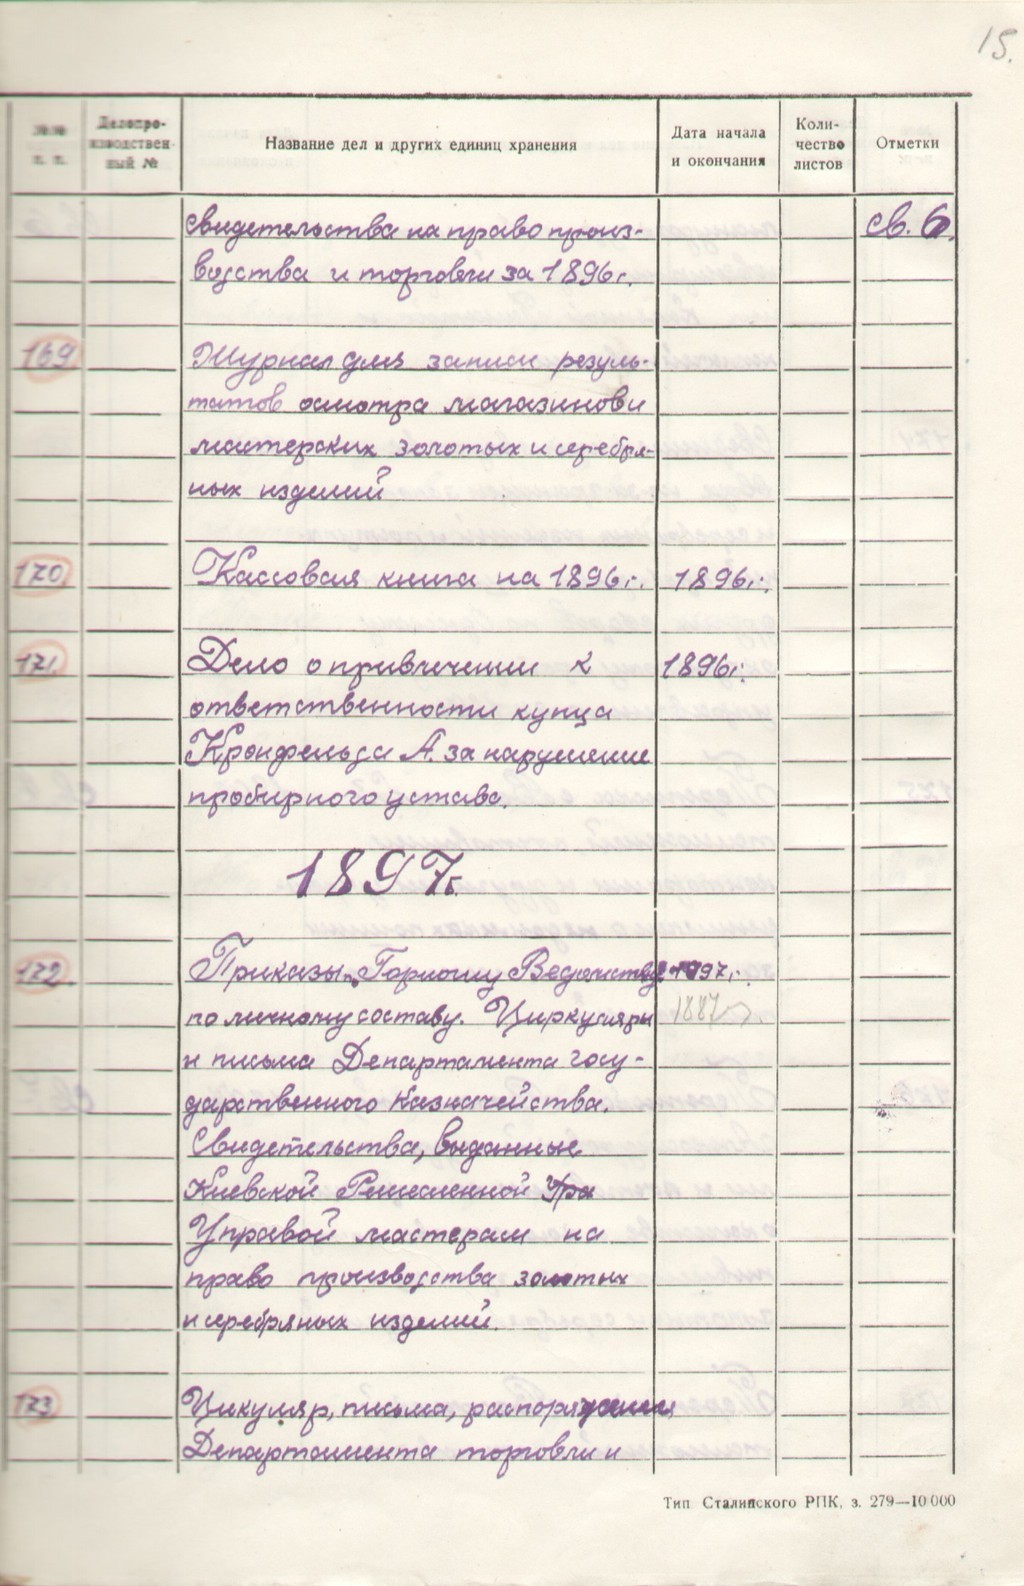 15.
№№ п. п.
Делопро-
изводствен-
ный №
Название дел и других единиц хранения
Дата начала
и окончания
Коли-
чество
листов
Отметки
свидетельства на право произ- св. 6.
водства и торговли за 1896 г.
169. Журнал для записи резуль-
татов осмотра магазинов и
мастерских золотых и серебря-
ных изделий
170 Кассовая книга на 1896 г. 1896 г.
171. Дело о привлечении к 1896 г.
ответственности купца
Кронфельда А. за нарушение
пробирного устава.
1897 г.
172. Приказы Горному Ведомству 1897 г.
по личному составу. Циркуляры 1887
и письма Департамента госу-
дарственного Казначейства.
Свидетельства, выданные
Киевской Ремесленной Упра
Управой мастерам на
право производства золотых
и серебряных изделий.
173 Цикуляр, письма, распоряжения
Департамента торговли и
Тип Сталинского РПК, з. 279—10 000